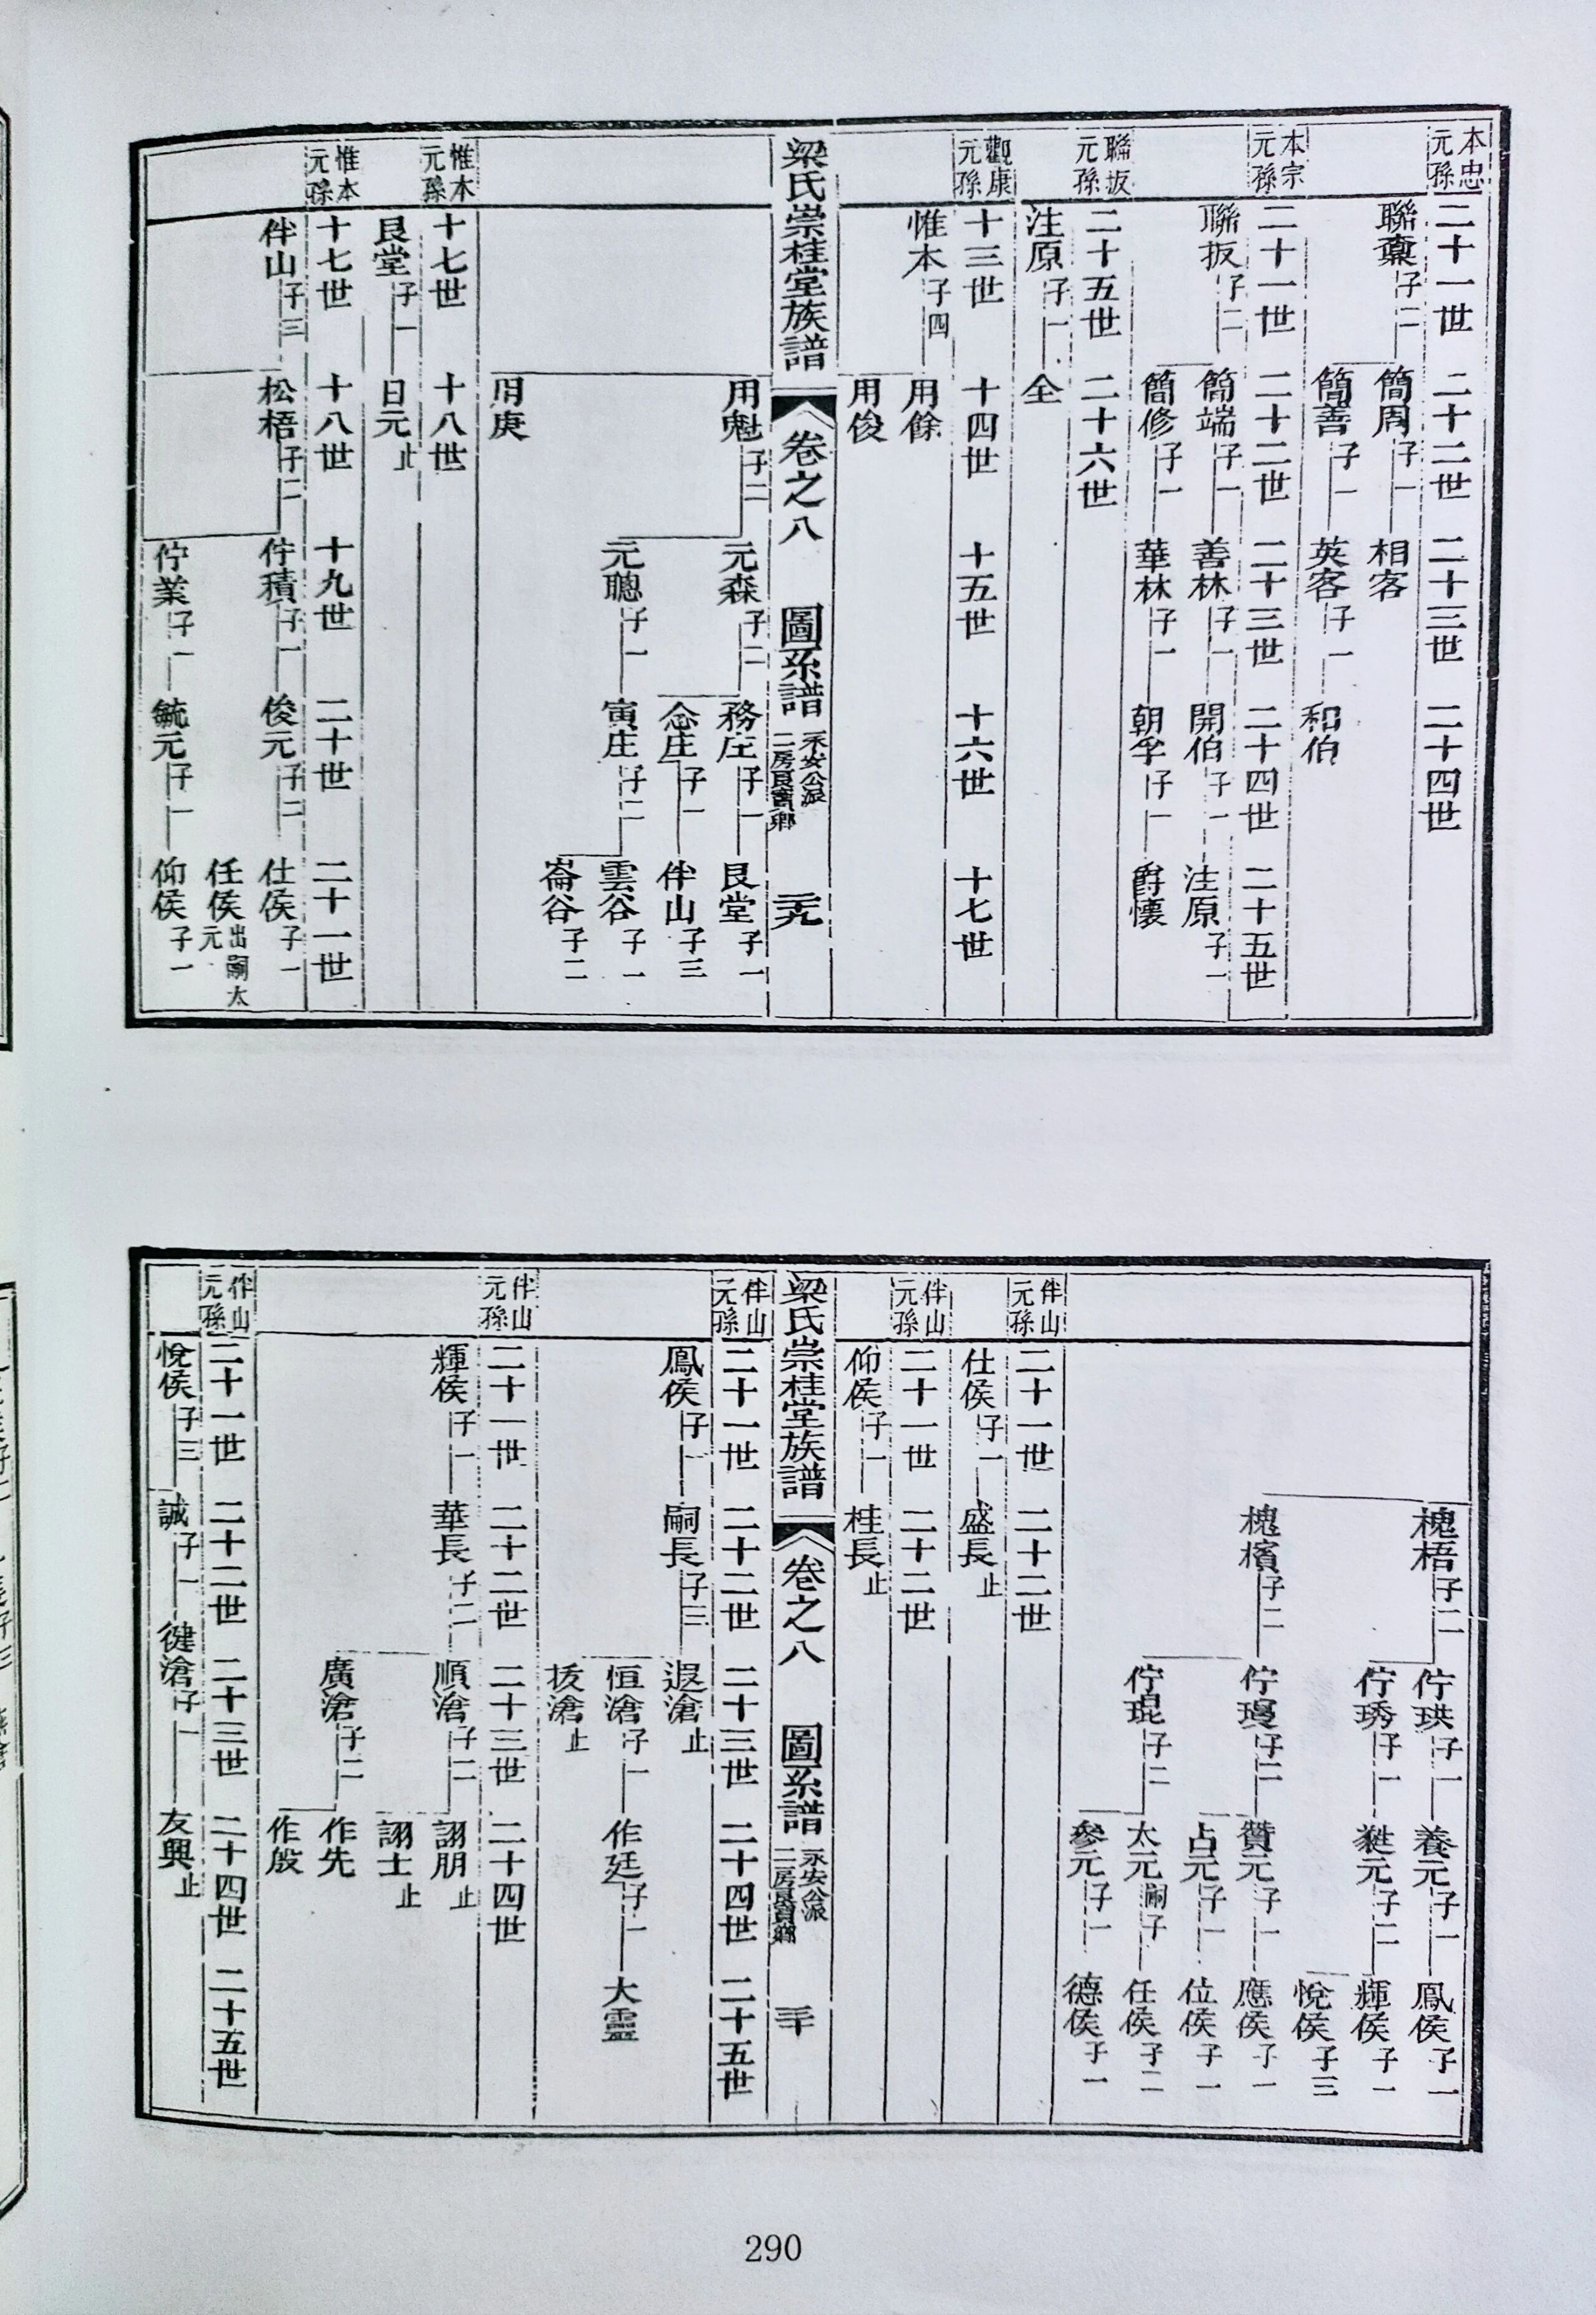 本忠
元孫
二十一世 二十二世 二十三世 二十四世
聯槀子二 簡周子一 相客
簡善子一 英客子一 和伯
本宗
元孫
二十一世 二十二世 二十三世 二十四世 二十五世
聯扳子二 簡端子一 善林子一 開伯子一 注原子一
簡修子一 華林子一 朝孚子一 爵懷
聯扳
元孫
二十五世 二十六世
注原子一 全
觀康
元孫
十三世 十四世 十五世 十六世 十七世
惟本子四 用餘
用俊
梁氏崇桂堂族譜 卷之八 圖系譜 永安公派 二房良寶鄉 二十九
用魁子二 元森子二 務庄子一 艮堂子一
念庄子一 伴山子三
元聰子一 寅庄子二 雲谷子一
崙谷子二
用庚
惟本
元孫
十七世 十八世
艮堂子一 日元止
惟本
元孫
十七世 十八世 十九世 二十世 二十一世
伴山子三 松梧子二 佇積子一 俊元子二 仕侯子一
任侯出嗣太元
佇業子一 毓元子一 仰侯子一
槐梧子二 佇珙子一 養元子一 鳳侯子一
佇琇子一 毵元子二 輝侯子一
悅侯子三
槐檳子二 佇璦子二 贊元子一 應侯子一
占元子一 位侯子一
佇琨子二 太元嗣子 任侯子二
參元子一 德侯子一
伴山
元孫
二十一世 二十二世
仕侯子一 盛長止
伴山
元孫
二十一世 二十二世
仰侯子一 桂長止
梁氏崇桂堂族譜 卷之八 圖系譜 永安公派 二房良寶鄉 三十
伴山
元孫
二十一世 二十二世 二十三世 二十四世 二十五世
鳳侯子一 嗣長子三 退滄止
恒滄子一 作廷子一 大靈
拔滄止
伴山
元孫
二十一世 二十二世 二十三世 二十四世
輝侯子一 華長子二 順滄子二 詡朋止
詡士止
廣滄子二 作先
作殷
伴山
元孫
二十一世 二十二世 二十三世 二十四世 二十五世
悅侯子三 誠子一 健滄子一 友興止
290